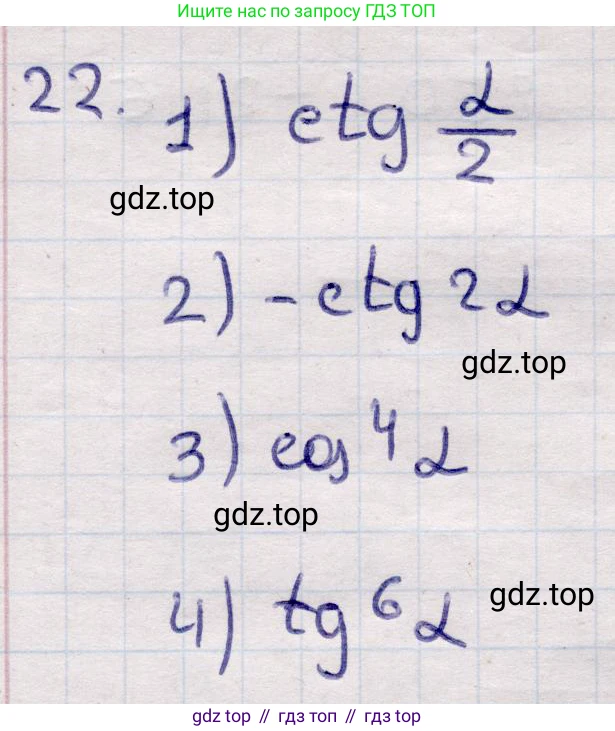 Ищите нас по запросу ГДЗ ТОП
22. 1) ctg α/2
gdz.top
2) - ctg 2α
gdz.top
3) cos⁴ α
gdz.top
4) tg⁶ α
gdz.top
gdz top // гдз топ // gdz.top